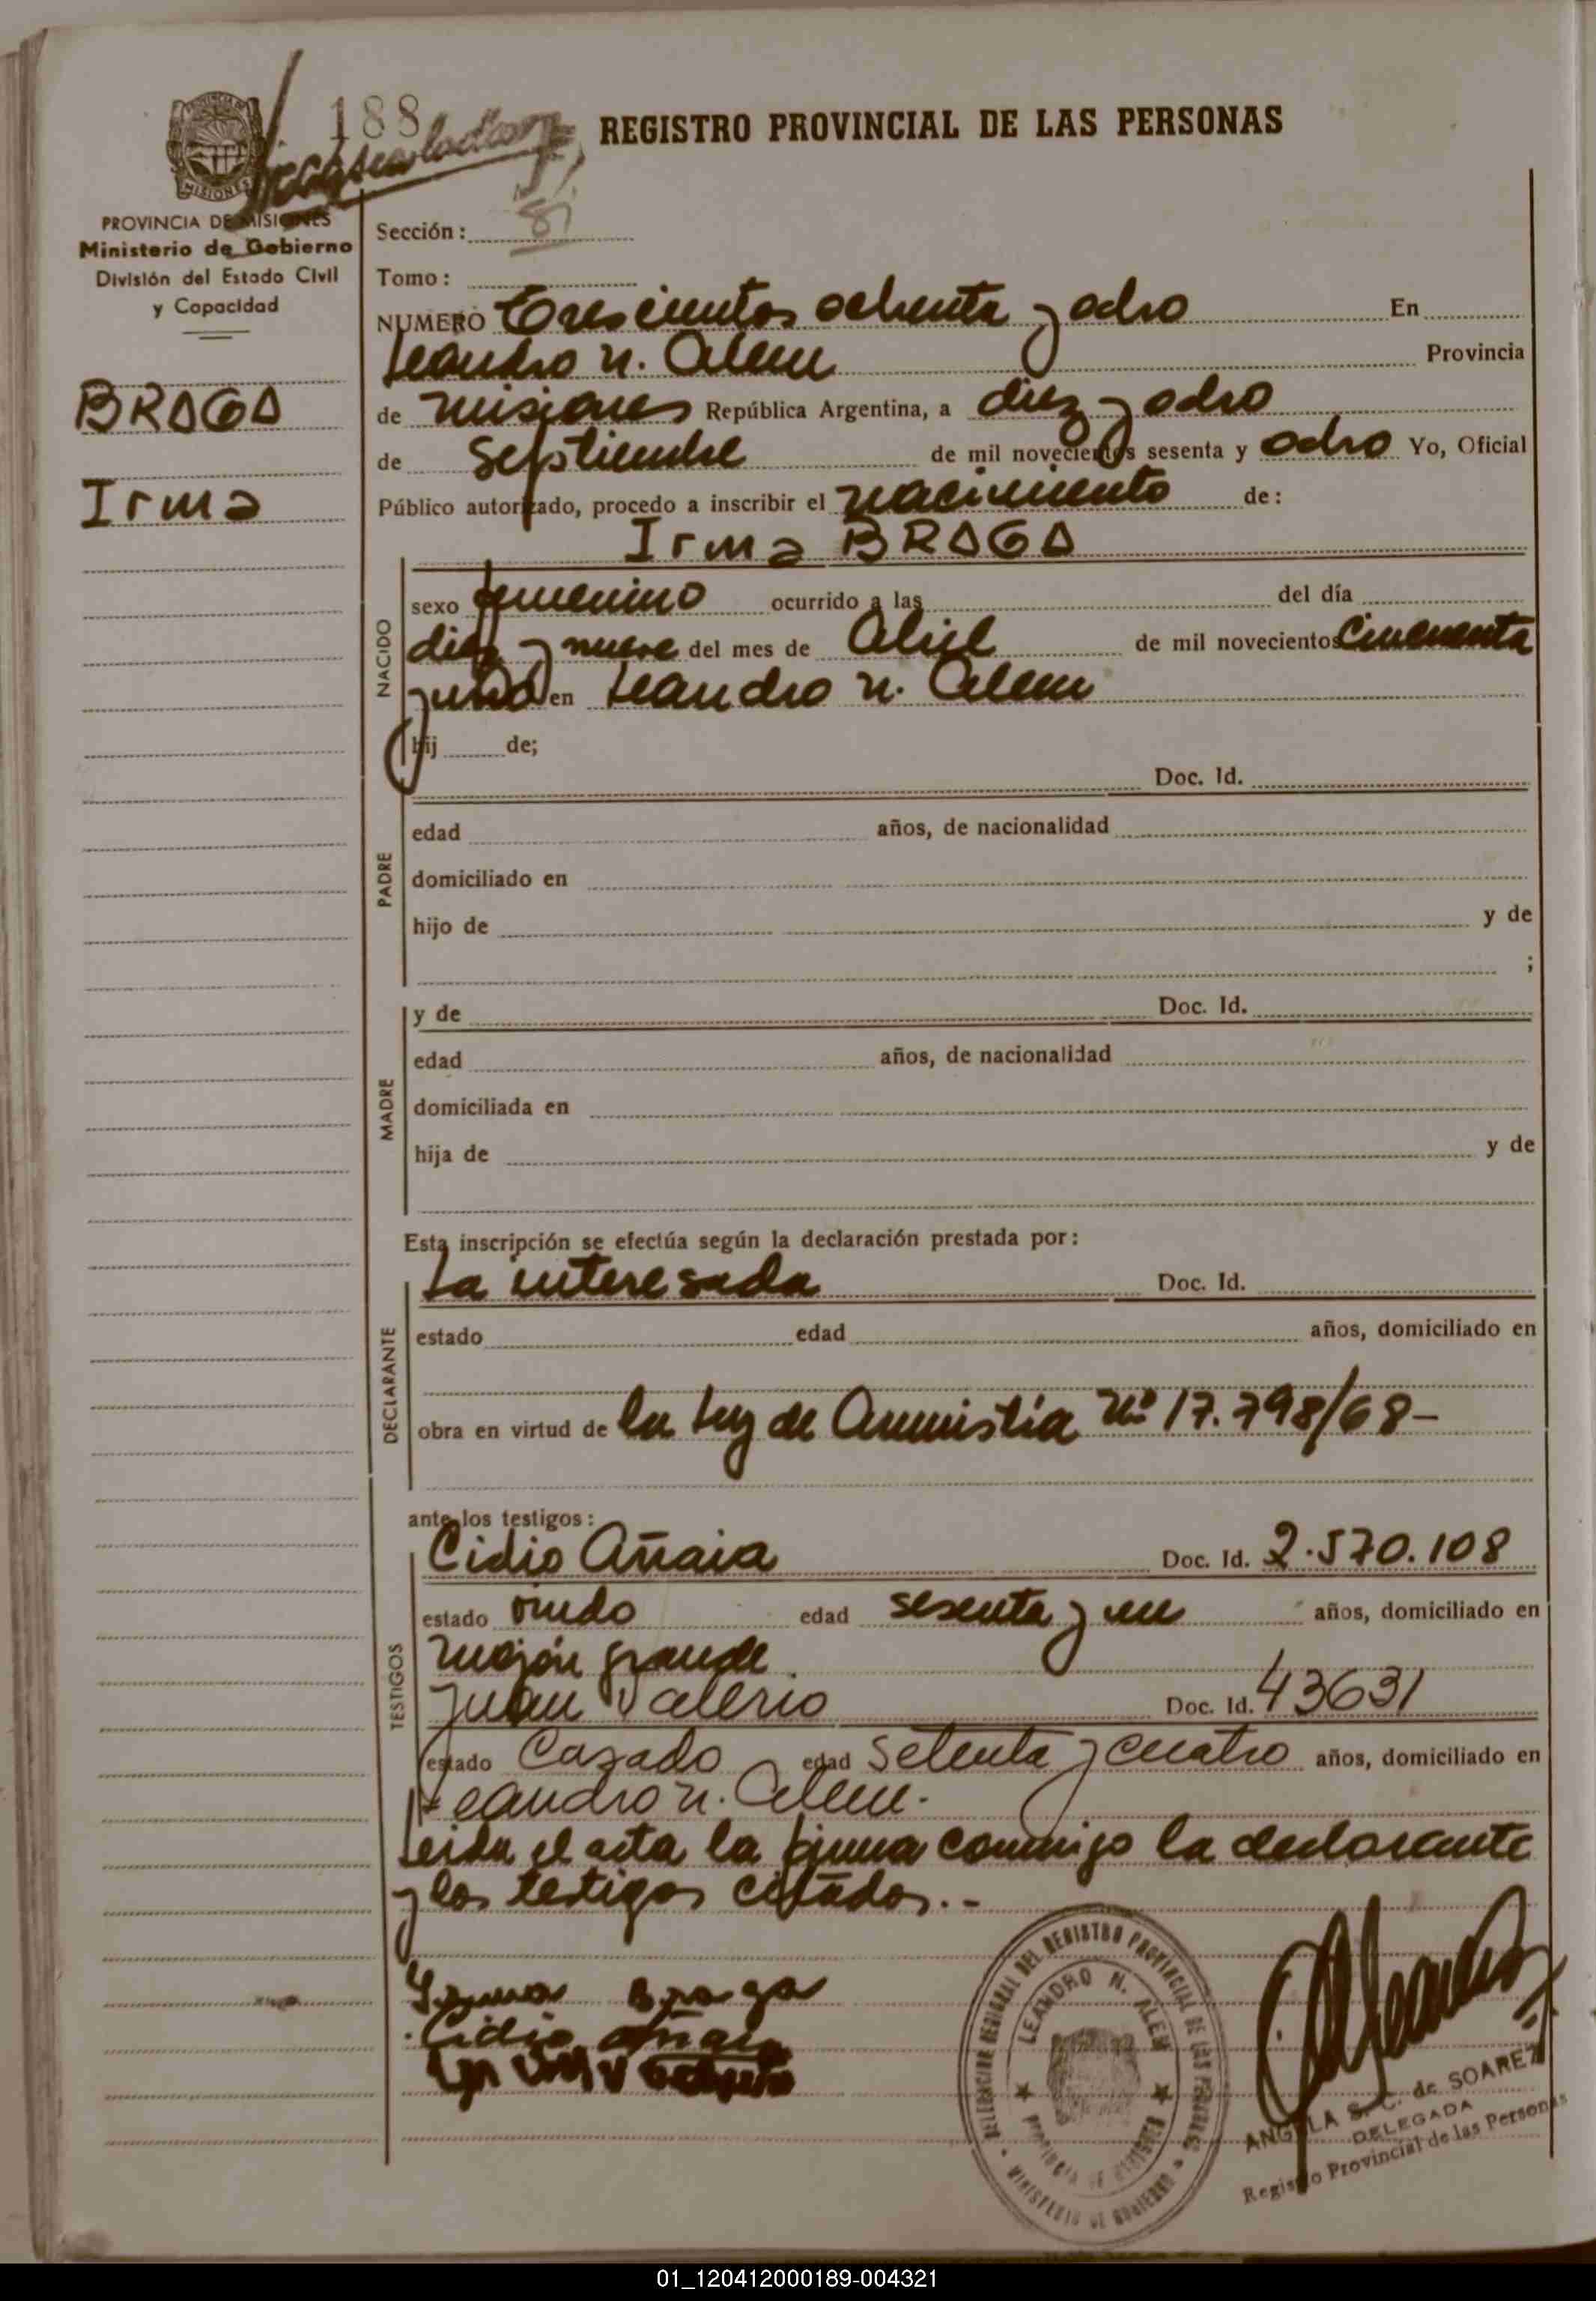 188
REGISTRO PROVINCIAL DE LAS PERSONAS
PROVINCIA DE MISIONES
Ministerio de Gobierno
División del Estado Civil
y Capacidad
BRAGA
Irma
Sección:
Tomo:
NUMERO Trescientos ochenta y ocho En
Leandro N. Alem Provincia
de Misiones República Argentina, a diez y ocho
de Septiembre de mil novecientos sesenta y ocho Yo, Oficial
Público autorizado, procedo a inscribir el nacimiento de:
Irma BRAGA
NACIDO
sexo femenino ocurrido a las del día
diez y nueve del mes de Abril de mil novecientos Cincuenta
y uno en Leandro N. Alem
hij de;
Doc. Id.
PADRE
edad años, de nacionalidad
domiciliado en
hijo de y de
;
MADRE
y de Doc. Id.
edad años, de nacionalidad
domiciliada en
hija de y de
Esta inscripción se efectúa según la declaración prestada por:
DECLARANTE
La interesada Doc. Id.
estado edad años, domiciliado en
obra en virtud de la Ley de Amnistia Nº 17.798/68-
ante los testigos:
TESTIGOS
Cidio Añaia Doc. Id. 2.570.108
estado viudo edad sesenta y un años, domiciliado en
Mojón grande.
Juan Valerio Doc. Id. 43631
estado Casado edad Setenta y cuatro años, domiciliado en
Leandro N. Alem.
Leida el acta la firma conmigo la declarante
y los testigos citados.-
Irma Braga
Cidio Añaia
DELEGACION REGIONAL DEL REGISTRO PROVINCIAL DE LAS PERSONAS
LEANDRO N. ALEM
PROVINCIA DE MISIONES
MINISTERIO DE GOBIERNO
ANGELA S. C. de SOAREZ
DELEGADA
Registro Provincial de las Personas
01_120412000189-004321